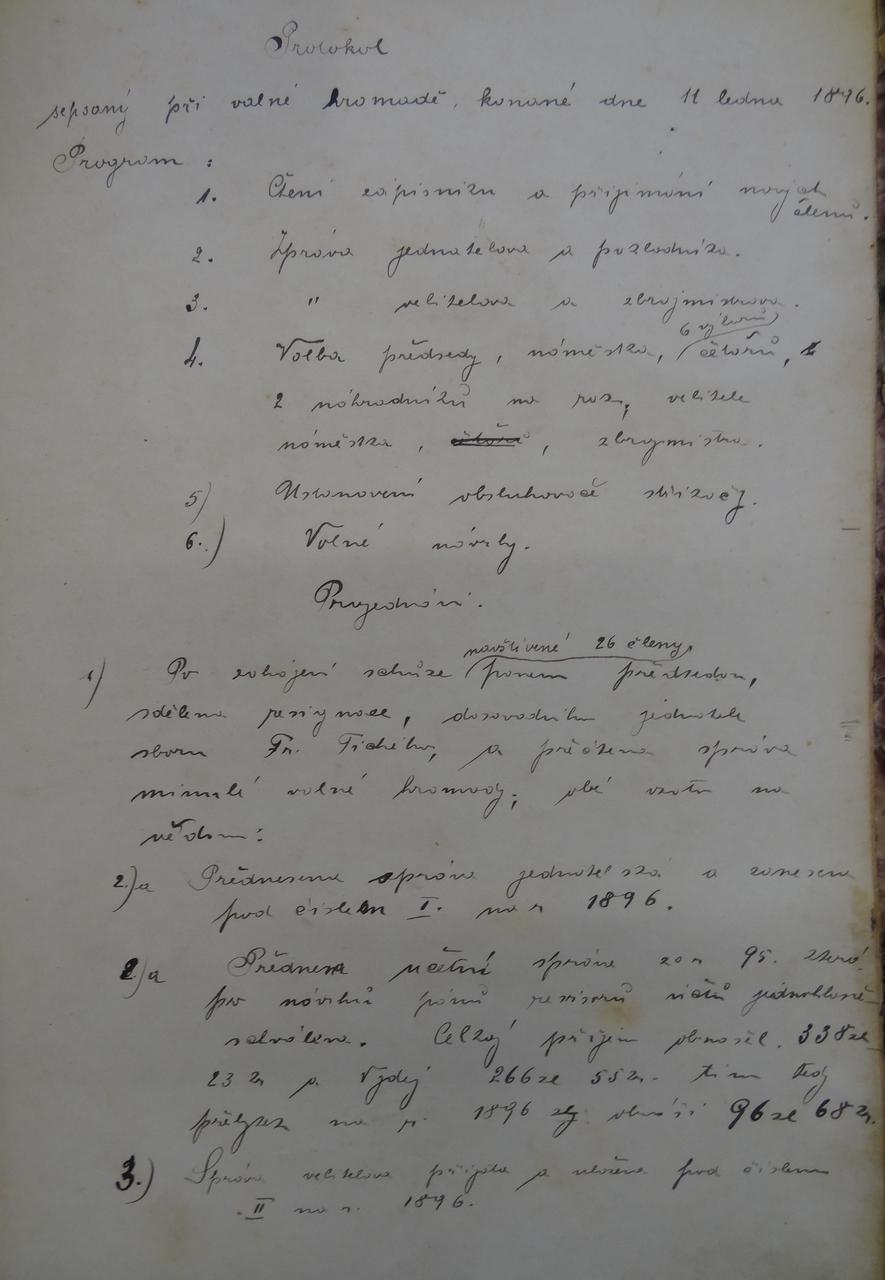 Protokol
sepsaný při valné hromadě, konané dne 11 ledna 1896.
Program :
1. Čtení zápisníku a přijímání nových
členů.
2. Zpráva jednatelova a pokladníka.
3. " velitelova a zbrojmistrova.
6 výborů
4. Volba předsedy, náměstka, četařů,
2 náhradníků na rok, velitele
náměstka, četařů, zbrojmistra.
5) Ustanovení obsluhovačů stříkačky.
6.) Volné návrhy.
Projednání.
navštívené 26 členy,
1) Po zahájení schůze panem předsedou,
sdělena resignace, dosavadního jednatele
sboru Fr. Tichého, a přečtena zpráva
minulé valné hromady; obé vzato na
vědom:
2.)a Přednesena zpráva jednatelská a zanesena
pod číslem I. na r 1896.
2.)a Přednesena účetní zpráva za r 95. která
po návrhu pánů revisorů účtů jednohlasně
schválena. Celkový příjem obnošel. 338 zl
23 kr a Výdej 266 zl 55 kr. tím tedy
přebytek na r. 1896 obnáší 96 zl 68 kr.
3.) Zpráva velitelova přijata a uložena pod číslem
II na r. 1896.